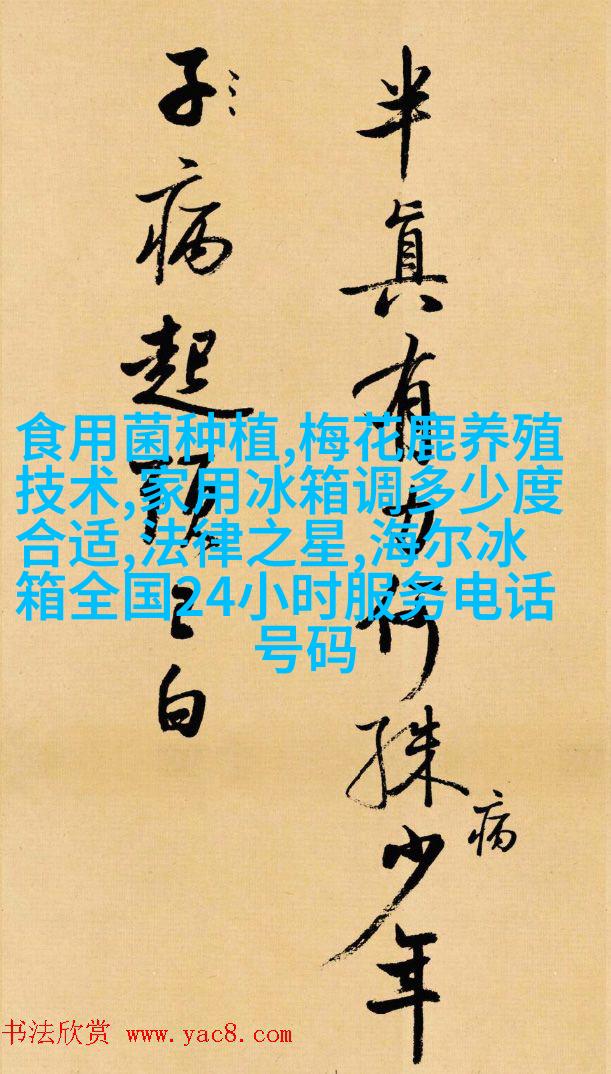 半真有力何殊病少年
子病起頭已白
食用菌种植,梅花鹿养殖
技术,家用冰箱调多少度
合适,法律之星,海尔冰
箱全国24小时服务电话
号码
书法欣赏 www.yac8.com